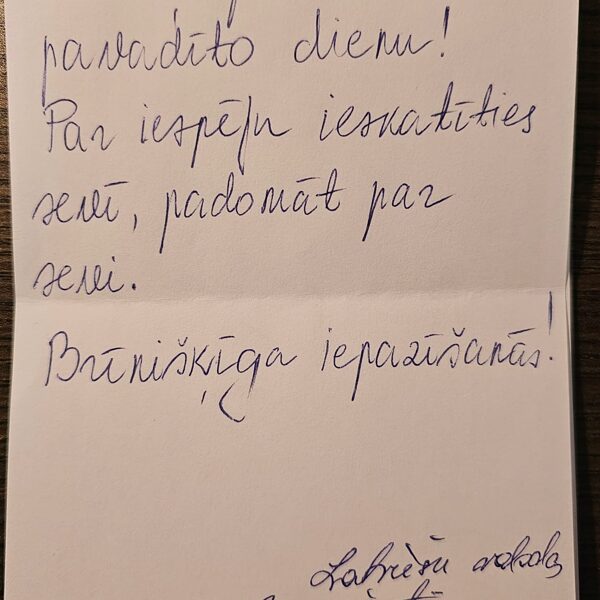 pavadīto dienu!
Par iespēju ieskatīties
sevī, padomāt par
sevi.
Brīnišķīga iepazīšanās!
Latviešu valodas